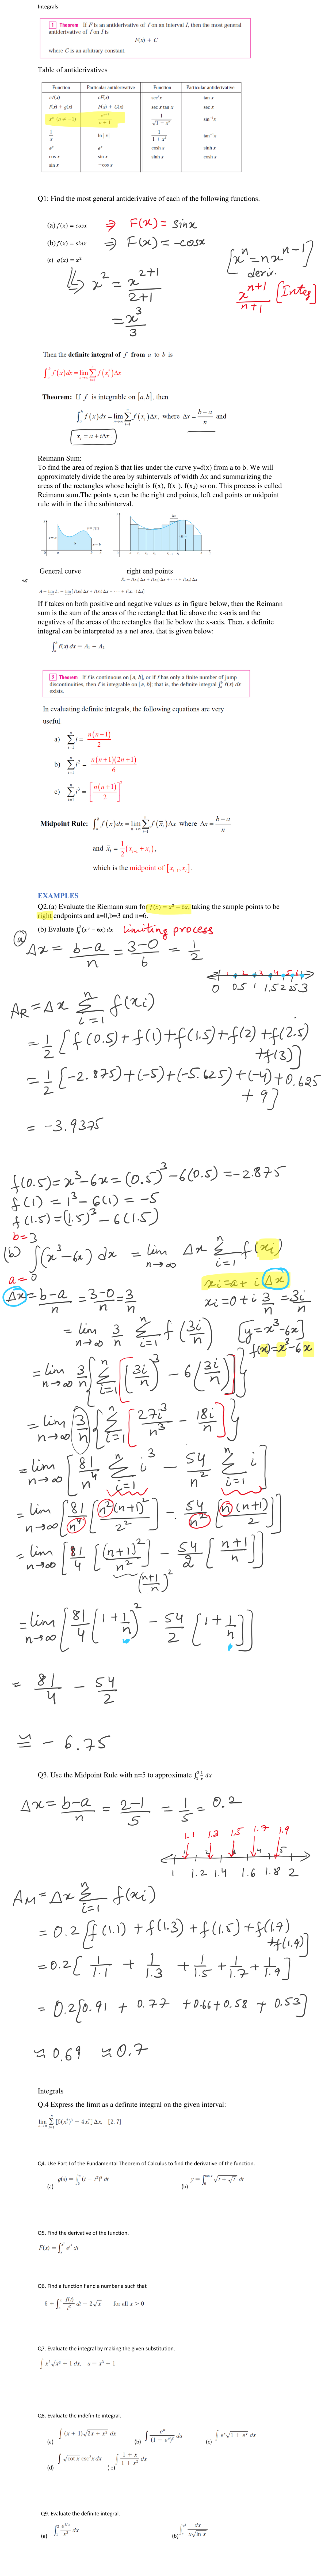 Integrals
1 Theorem If F is an antiderivative of f on an interval I, then the most general
antiderivative of f on I is
F(x) + C
where C is an arbitrary constant.
Table of antiderivatives
Function Particular antiderivative Function Particular antiderivative
c f(x) cF(x) sec²x tan x
f(x) + g(x) F(x) + G(x) sec x tan x sec x
xⁿ (n ≠ −1) xⁿ⁺¹/(n + 1) 1/√(1 − x²) sin⁻¹x
1/x ln |x| 1/(1 + x²) tan⁻¹x
eˣ eˣ cosh x sinh x
cos x sin x sinh x cosh x
sin x −cos x
Q1: Find the most general antiderivative of each of the following functions.
(a) f(x) = cosx ⇒ F(x) = sinx
(b) f(x) = sinx ⇒ F(x) = -cosx
(c) g(x) = x²
x² = x^(2+1)/(2+1)
= x³/3
[xⁿ = nxⁿ⁻¹]
deriv.
xⁿ⁺¹/(n+1) [Integ]
Then the definite integral of f from a to b is
∫ₐᵇ f(x)dx = lim n→∞ Σ i=1 n f(xᵢ*)Δx
Theorem: If f is integrable on [a,b], then
∫ₐᵇ f(x)dx = lim n→∞ Σ i=1 n f(xᵢ)Δx, where Δx = (b−a)/n and
xᵢ = a + iΔx.
Reimann Sum:
To find the area of region S that lies under the curve y=f(x) from a to b. We will
approximately divide the area by subintervals of width Δx and summarizing the
areas of the rectangles whose height is f(x), f(x₁), f(x₂) so on. This process is called
Reimann sum.The points xᵢ can be the right end points, left end points or midpoint
rule with in the i the subinterval.
General curve right end points
Rₙ = f(x₁) Δx + f(x₂) Δx + · · · + f(xₙ) Δx
If f takes on both positive and negative values as in figure below, then the Reimann
sum is the sum of the areas of the rectangle that lie above the x-axis and the
negatives of the areas of the rectangles that lie below the x-axis. Then, a definite
integral can be interpreted as a net area, that is given below:
∫ₐᵇ f(x) dx = A₁ − A₂
3 Theorem If f is continuous on [a, b], or if f has only a finite number of jump
discontinuities, then f is integrable on [a, b]; that is, the definite integral ∫ₐᵇ f(x) dx
exists.
In evaluating definite integrals, the following equations are very
useful.
a) Σ i=1 n i = n(n+1)/2
b) Σ i=1 n i² = n(n+1)(2n+1)/6
c) Σ i=1 n i³ = [n(n+1)/2]²
Midpoint Rule: ∫ₐᵇ f(x)dx = lim n→∞ Σ i=1 n f(x̄ᵢ)Δx where Δx = (b−a)/n
and x̄ᵢ = 1/2(xᵢ₋₁ + xᵢ),
which is the midpoint of [xᵢ₋₁, xᵢ].
EXAMPLES
Q2.(a) Evaluate the Riemann sum for f(x) = x³ − 6x, taking the sample points to be
right endpoints and a=0,b=3 and n=6.
(b) Evaluate ∫₀³(x³ − 6x) dx limiting process
(a) Δx = (b-a)/n = (3-0)/6 = 1/2
1 2 3 4 5 6
0 0.5 1 1.5 2 2.5 3
A_R = Δx Σ i=1 n f(xi)
= 1/2 [f(0.5) + f(1) + f(1.5) + f(2) + f(2.5)
+ f(3)]
= 1/2 [-2.875) + (-5) + (-5.625) + (-4) + 0.625
+ 9]
= -3.9375
f(0.5) = x³-6x = (0.5)³ - 6(0.5) = -2.875
f(1) = 1³ - 6(1) = -5
f(1.5) = (1.5)³ - 6(1.5)
b=3
(b) ∫(x³-6x) dx = lim n→∞ Δx Σ i=1 n f(xi)
a=0
xi = a + i Δx
Δx = (b-a)/n = (3-0)/n = 3/n
xi = 0 + i 3/n = 3i/n
= lim n→∞ 3/n Σ i=1 n f(3i/n) [y = x³-6x]
f(x) = x³-6x
= lim n→∞ 3/n {Σ i=1 n [(3i/n)³ - 6(3i/n)]}
= lim n→∞ 3/n {Σ i=1 n [27i³/n³ - 18i/n]}
= lim n→∞ [81/n⁴ Σ i=1 n i³ - 54/n² Σ i=1 n i]
= lim n→∞ [81/n⁴ [n²(n+1)²/2²] - 54/n² [n(n+1)/2]]
= lim n→∞ [81/4 [(n+1)²/n²] - 54/2 [(n+1)/n]]
((n+1)/n)²
= lim n→∞ [81/4 (1+1/n)² - 54/2 [1+1/n]]
= 81/4 - 54/2
≅ - 6.75
Q3. Use the Midpoint Rule with n=5 to approximate ∫₁² 1/x dx
Δx = (b-a)/n = (2-1)/5 = 1/5 = 0.2
1.1 1.3 1.5 1.7 1.9
1 1.2 1.4 1.6 1.8 2
A_M = Δx Σ i=1 n f(xi)
= 0.2 [f(1.1) + f(1.3) + f(1.5) + f(1.7)
+ f(1.9)]
= 0.2 [1/1.1 + 1/1.3 + 1/1.5 + 1/1.7 + 1/1.9]
= 0.2 [0.91 + 0.77 + 0.66 + 0.58 + 0.53]
≈ 0.69 ≈ 0.7
Integrals
Q.4 Express the limit as a definite integral on the given interval:
lim n→∞ Σ i=1 n [5(xᵢ*)³ − 4xᵢ*] Δx, [2, 7]
Q4. Use Part I of the Fundamental Theorem of Calculus to find the derivative of the function.
(a) g(s) = ∫₅ˢ (t − t²)⁸ dt (b) y = ∫₀^(tan x) √(t + √t) dt
Q5. Find the derivative of the function.
Q6. Find a function f and a number a such that
6 + ∫ₐˣ f(t)/t² dt = 2√x for all x > 0
Q7. Evaluate the integral by making the given substitution.
∫ x²√(x³ + 1) dx, u = x³ + 1
Q8. Evaluate the indefinite integral.
(a) ∫ (x + 1)√(2x + x²) dx (b) ∫ eᵘ/(1 − eᵘ)² du (c) ∫ eˣ√(1 + eˣ) dx
(d) ∫ √(cot x) csc²x dx (e) ∫ (1 + x)/(1 + x²) dx
Q9. Evaluate the definite integral.
(a) ∫₁² e^(1/x)/x² dx (b) dx/(x√(ln x))